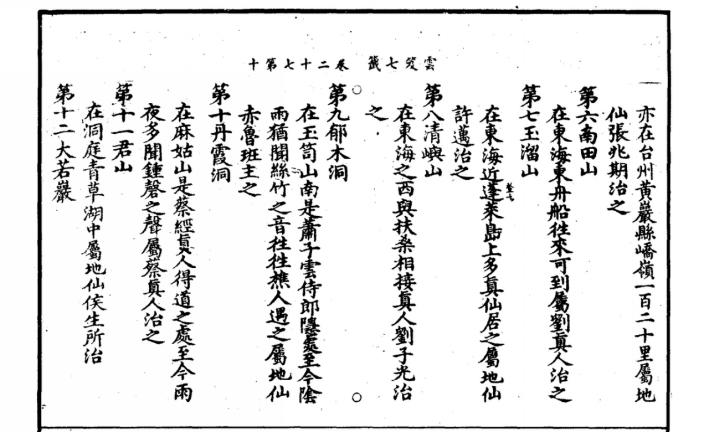 雲笈七籤 卷二十七第十
亦在台州黃巖縣嶠嶺一百二十里屬地
仙張兆期治之
第六南田山
在東海東舟船徃來可到屬劉真人治之
第七玉溜山
在東海近蓬萊島上多真仙居之屬地仙
許邁治之
第八清嶼山
在東海之西與扶桒相接真人劉子光治
之
第九郁木洞
在玉笥山南是蕭子雲侍郎隱處至今陰
雨猶聞絲竹之音徃徃樵人遇之屬地仙
赤魯班主之
第十丹霞洞
在麻姑山是蔡經真人得道之處至今雨
夜多聞鍾磬之聲屬蔡真人治之
第十一君山
在洞庭青草湖中屬地仙侯生所治
第十二大若巖